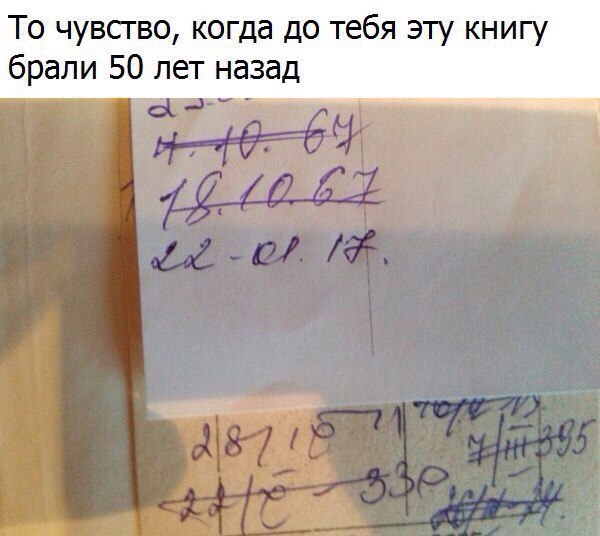 То чувство, когда до тебя эту книгу
брали 50 лет назад
4.10.67
18.10.67
22-01.17.
28/10
7/III 395
22/X 330